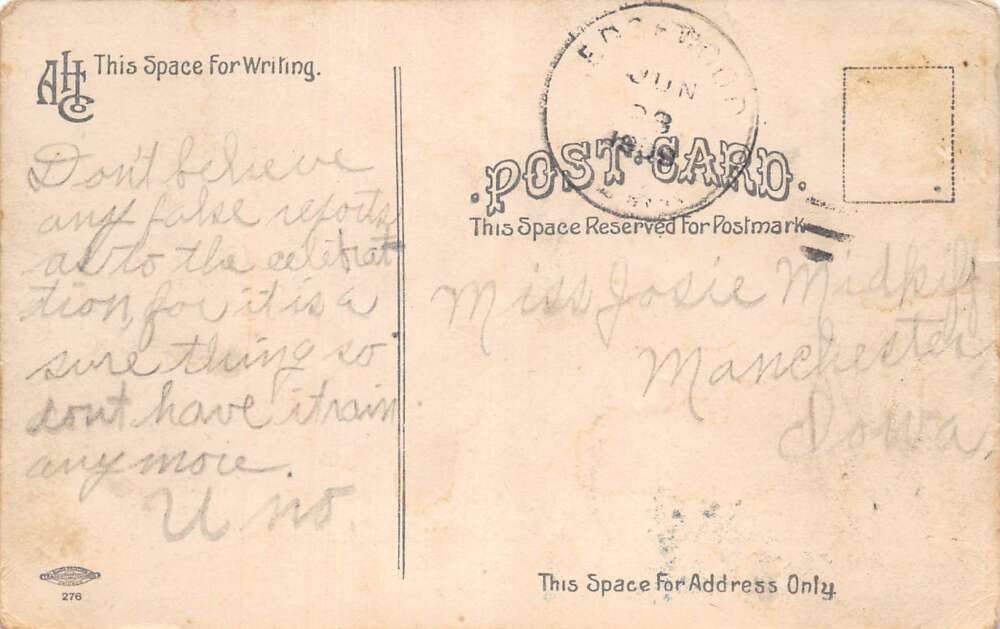 AHCo This Space For Writing.
Don't believe
any false reports
as to the celebrat
tion, for it is a
sure thing so
dont have it rain
any more.
U no.
276
EDGEWOOD
JUN
POST CARD.
This Space Reserved For Postmark
Miss Josie Midkiff
Manchester,
Iowa,
This Space For Address Only